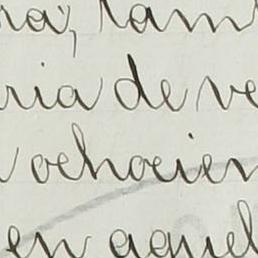 ra, tam
ria de ve
ochocien
en aquel